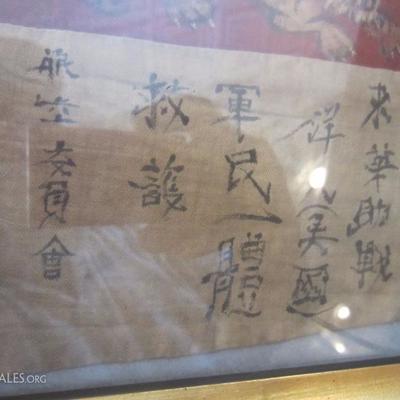 來華助戰
洋人(美國)
軍民一體
救護
航空委員會
ALES.ORG